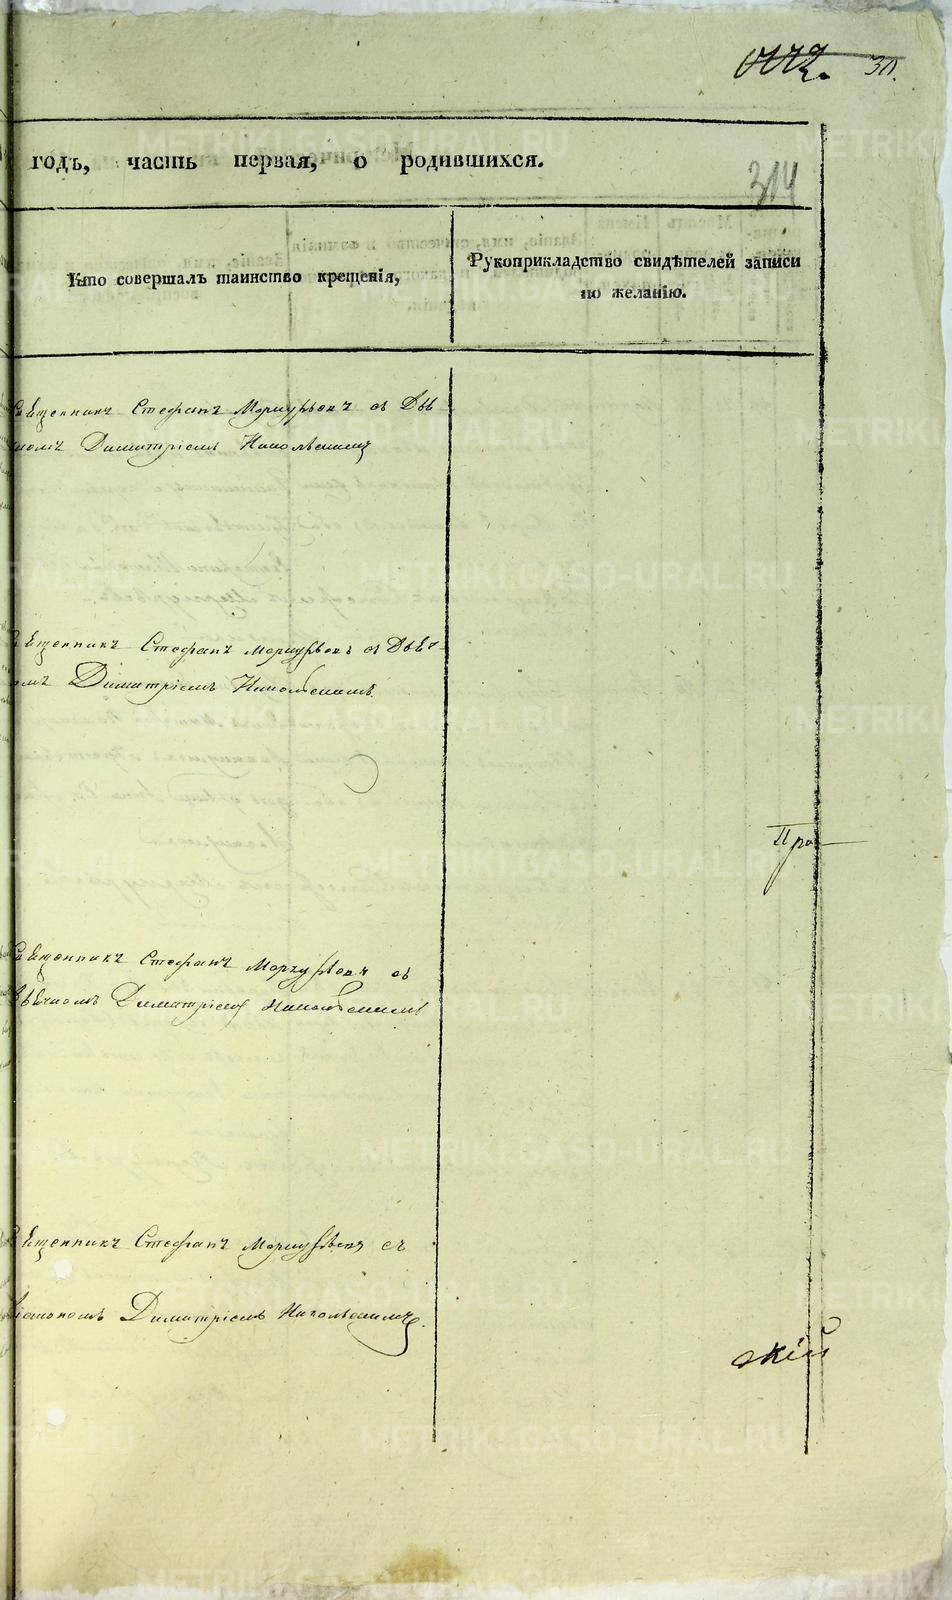 30.
годъ, часть первая, о родившихся.
314
Кто совершалъ таинство крещенія,
Рукоприкладство свидѣтелей записи
по желанію.
Священникъ Стефанъ Меркурьевъ съ Дья-
Димитріемъ Никольскимъ
Священникъ Стефанъ Меркурьевъ съ
Димитріемъ Никольскимъ.
Про-
Священникъ Стефанъ Меркурьевъ съ
Димитріемъ Никольскимъ
Священникъ Стефанъ Меркурьевъ съ
Діакономъ Димитріемъ Никольскимъ.
скій
METRIKI.GASO-URAL.RU